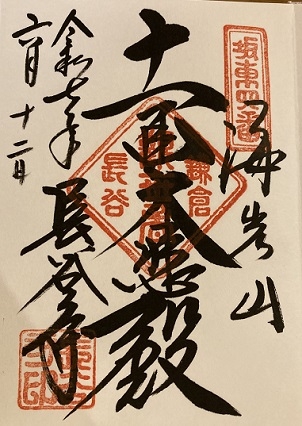 坂東四番
海光山
十一面大悲殿
鎌倉
長谷
長谷寺
令和七年
六月十二日